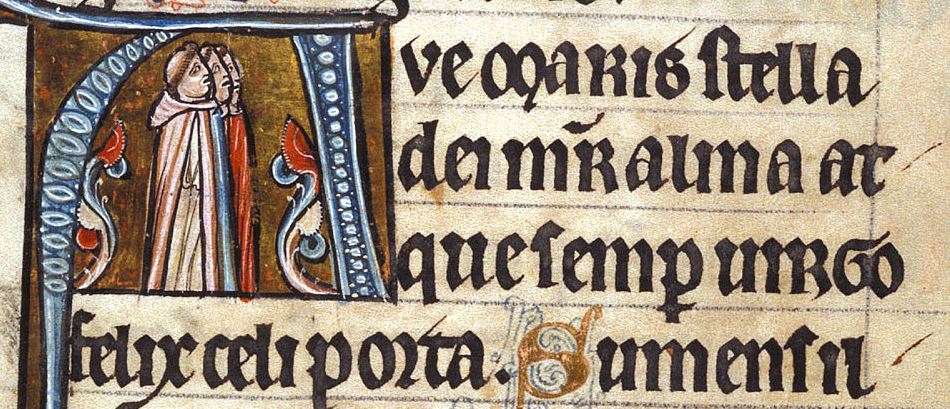 Ave maris stella
dei mr̄ alma at
que semꝑ uirgo
felix celi porta. Sumens il